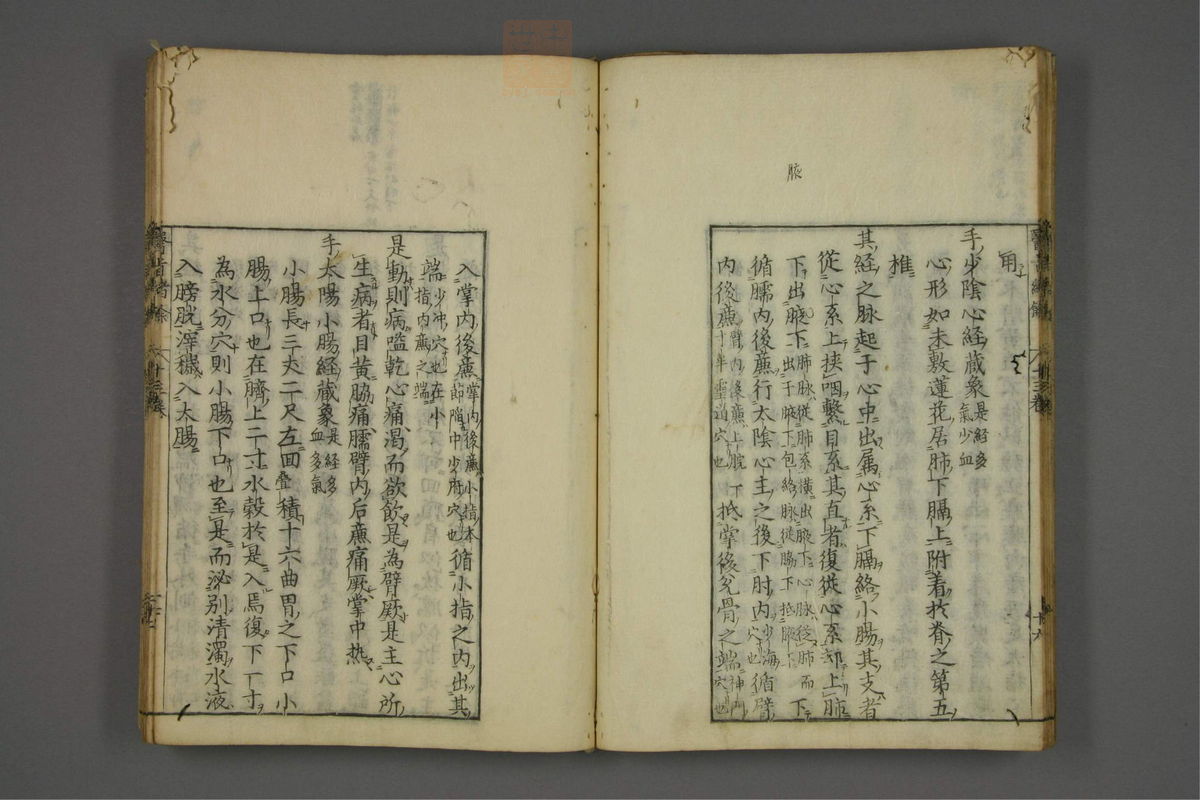 腋
用
手少陰心経蔵象是経多氣少血
心形如未敷蓮花居肺下膈上附着於脊之第五
椎
其経之脉起于心中出属心系下膈絡小腸其支者
従心系上挟咽繋目系其直者復従心系却上肺
下出腋下肺脉従肺系横出腋下心脉従肺而下出于腋下包絡脉従脇下抵腋下下
循臑内後廉行太陰心主之後下肘内少海穴也循臂
内後廉臂内後廉上腕寸半霊道穴也下抵掌後兌骨之端神門穴也
入掌内後廉掌内後廉小指本節陥中少府穴也循小指之内出其
端少冲穴也在小指内廉之端
是動則病嗌乾心痛渇而欲飲是為臂厥是主心所
生病者目黄脇痛臑臂内后廉痛厥掌中热
手太陽小腸経蔵象是経多血多氣
小腸長三丈二尺左回疊積十六曲胃之下口小
腸上口也在臍上二寸水穀於是入焉復下一寸
為水分穴則小腸下口也至是而泌別清濁水液
入膀胱滓穢入大腸